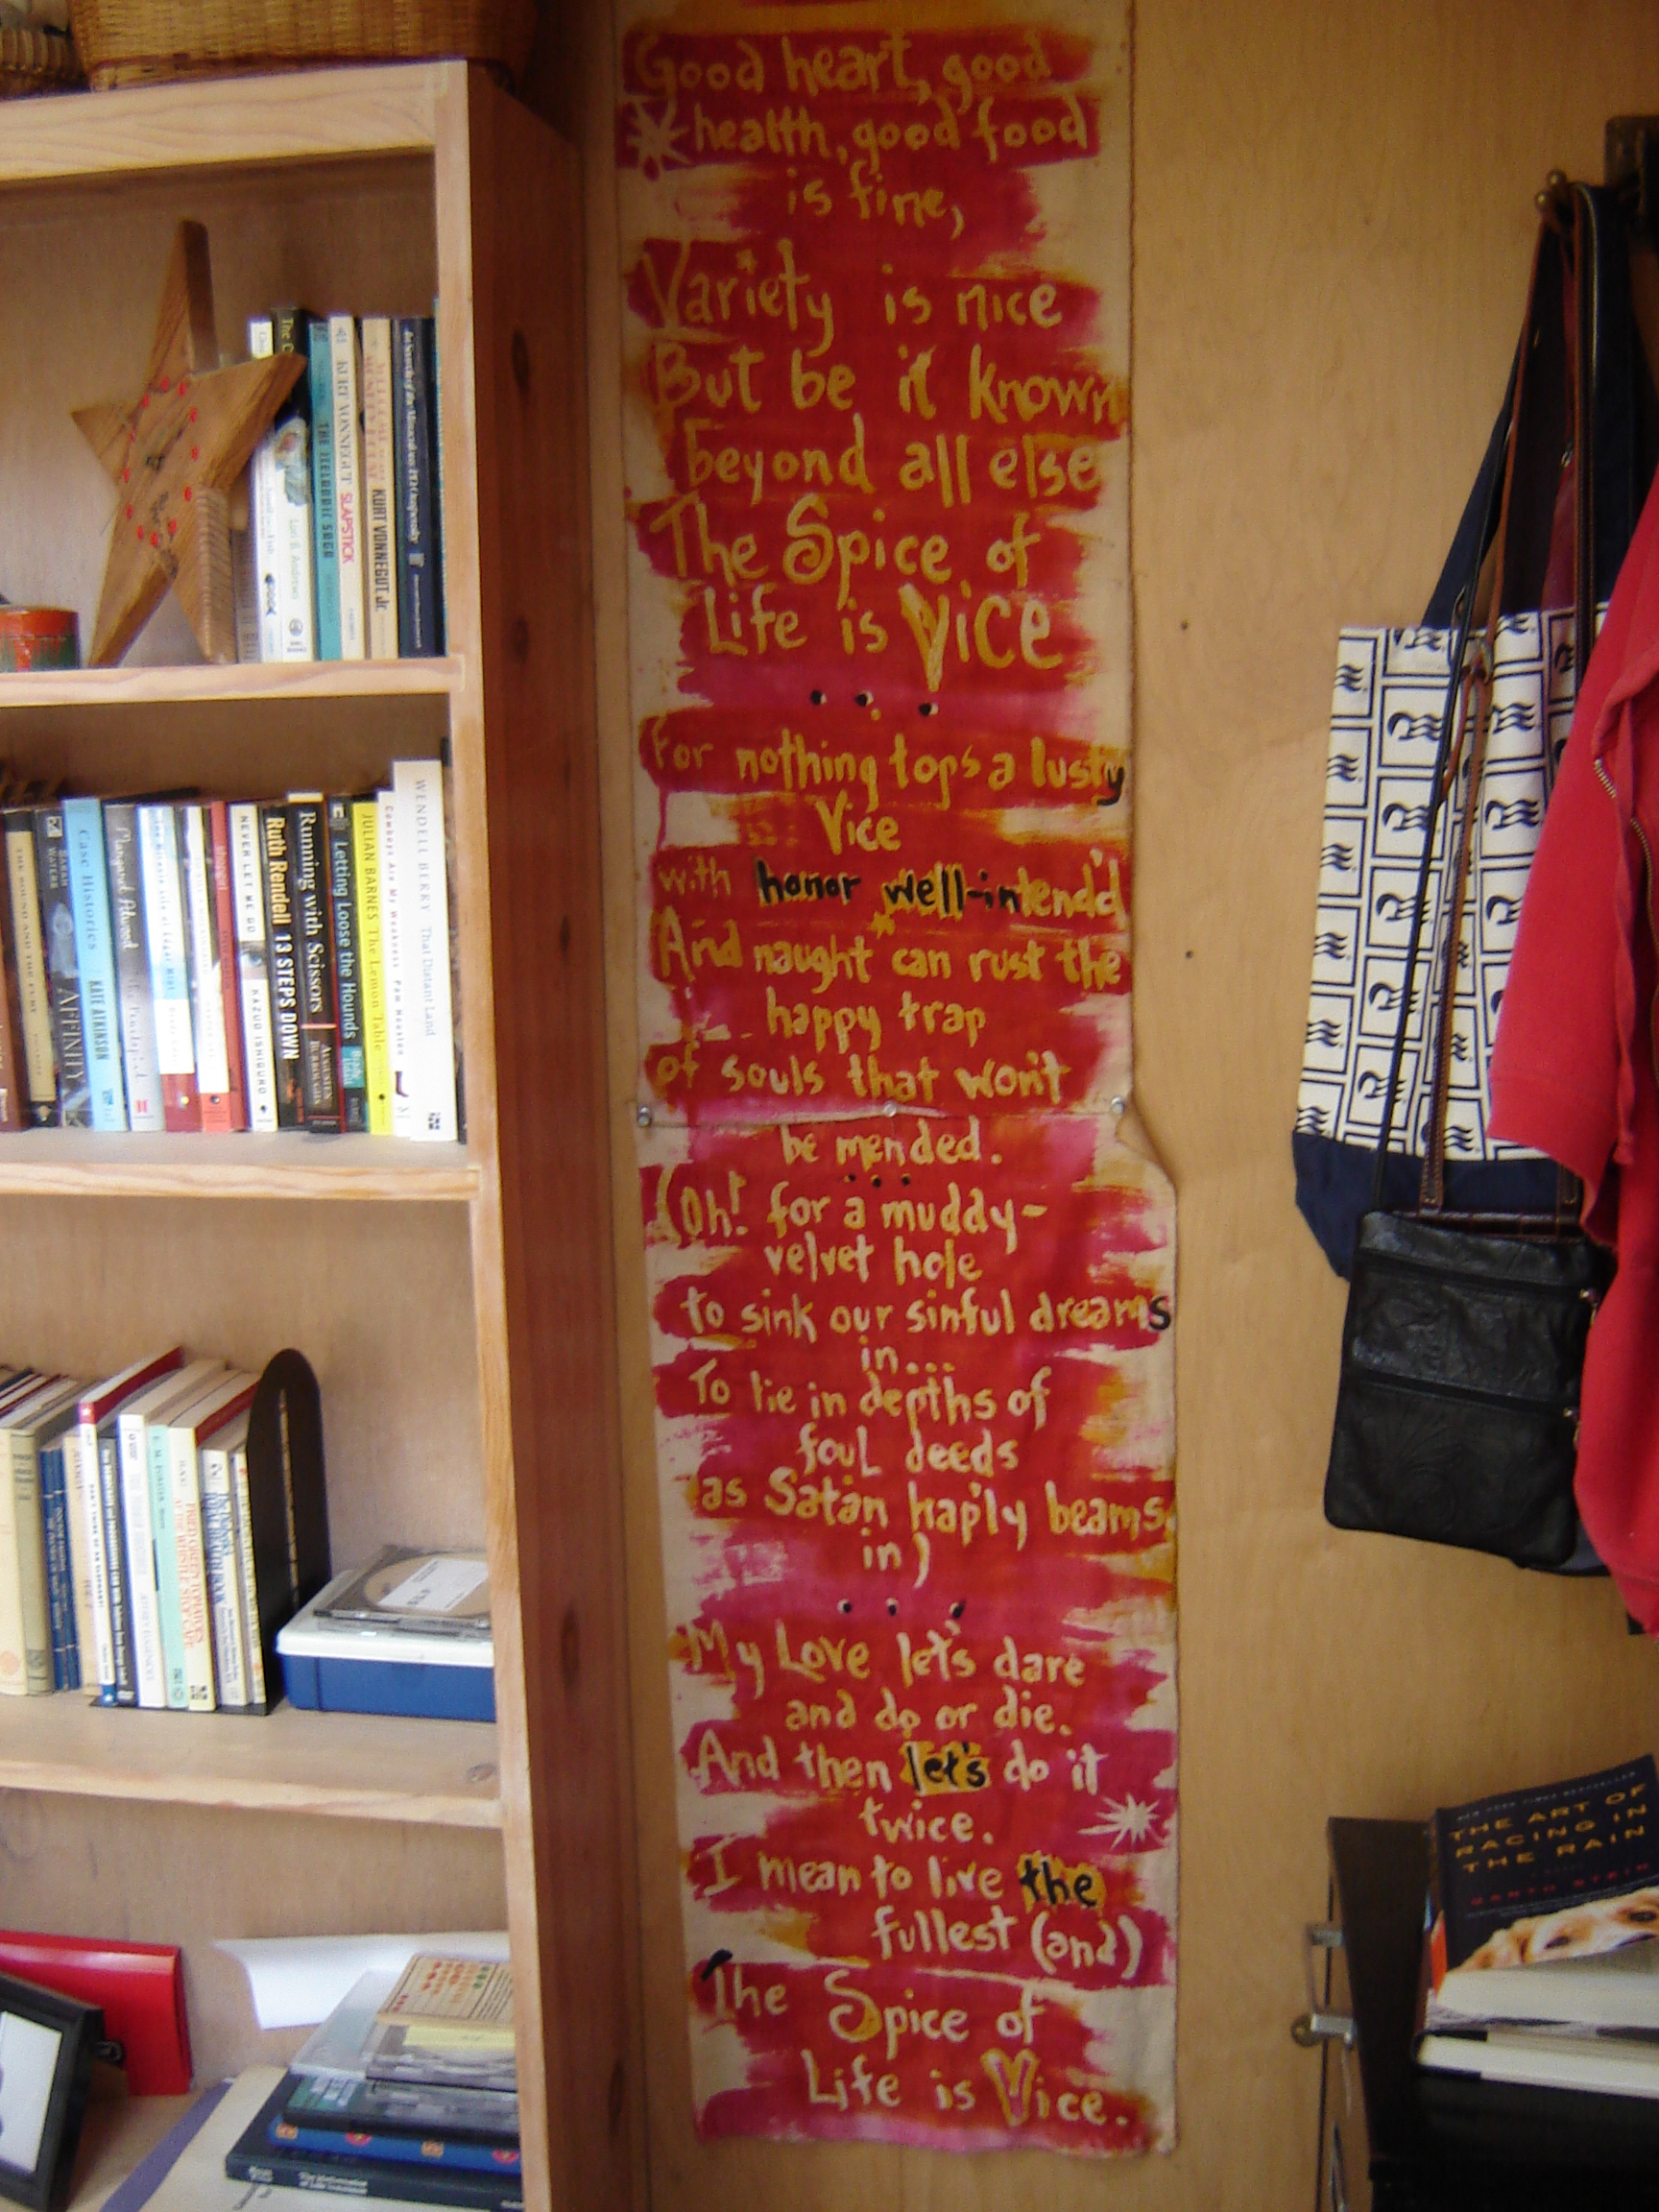 Good heart, good
health, good food
is fine,
Variety is nice
But be it known
beyond all else
The Spice of
Life is Vice
...
For nothing tops a lusty
Vice
with honor well-intend'd
And naught can rust the
happy trap
of souls that won't
be mended.
...
(Oh! for a muddy-
velvet hole
to sink our sinful dreams
in...
To lie in depths of
fouL deeds
as Satan hap'ly beams
in)
...
My Love let's dare
and do or die.
And then let's do it
twice.
I mean to live the
fullest (and)
The Spice of
Life is Vice.
THE ICELANDIC SAGA
KURT VONNEGUT SLAPSTICK
KURT VONNEGUT, Jr.
THE SOUND AND THE FURY
SARAH WATERS AFFINITY
Case Histories KATE ATKINSON
Margaret Atwood
NEVER LET ME GO KAZUO ISHIGURO
Ruth Rendell 13 STEPS DOWN
Running with Scissors AUGUSTEN BURROUGHS
Letting Loose the Hounds
JULIAN BARNES The Lemon Table
Cowboys Are My Weakness Pam Houston
WENDELL BERRY That Distant Land
E. M. Forster
FRIED GREEN TOMATOES AT THE WHISTLE STOP CAFE
THE ART OF
RACING IN
THE RAIN
GARTH STEIN